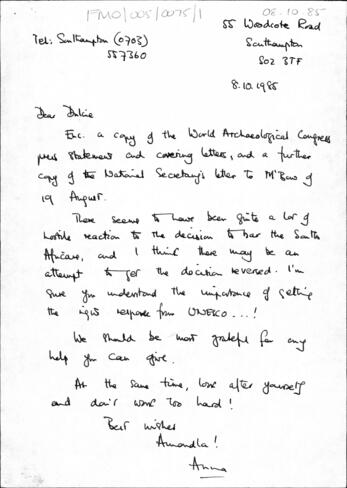 FMO/005/0075/1
08.10.85
55 Woodcote Road
Tel: Southampton (0703)
557360
Southampton
SO2 3TF
8.10.1985
Dear Dulcie
Enc. a copy of the World Archaeological Congress
press statement and covering letters, and a further
copy of the National Secretary's letter to M'Bow of
19 August.
There seems to have been quite a lot of
hostile reaction to the decision to bar the South
Africans, and I think there may be an
attempt to get the decision reversed. I'm
sure you understand the importance of getting
the right response from UNESCO...!
We should be most grateful for any
help you can give.
At the same time, look after yourself
and don't work too hard!
Best wishes
Amandla!
Anna